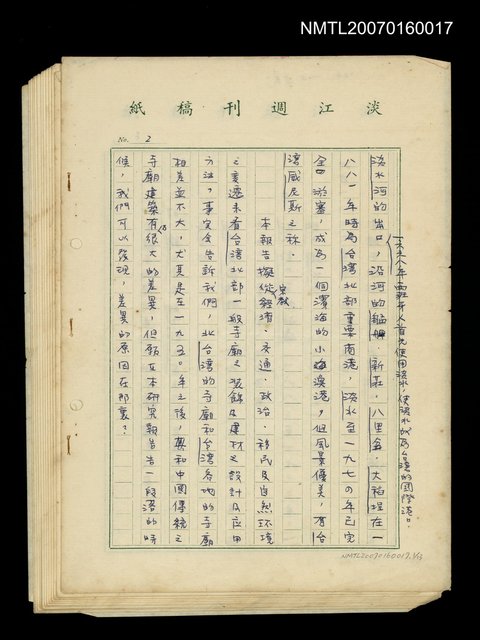 NMTL20070160017
淡江週刊稿紙
No. 2
一六二八年西班牙人首先使用淡水，使淡水成為台灣的國際港。
淡水河的出口，沿河的艋舺．新莊．八里坌．大稻埕在一
八八一年時為台灣北部重要商港，淡水至一九七〇年已完
全 淤塞，成為一個濱海的小漁港，但風景優美，有台
灣威尼斯之稱．
本報告擬從經濟．宗教．交通．政治．移民及自然環境
之變遷來看台灣北部一般寺廟之裝飾及建材之設計及應用
方法，事實會告訴我們，北台灣的寺廟和台灣各地的寺廟
相差並不大，尤其是至一九五〇年之後，與和中國傳統之
寺廟建築有很大的差異，但願在本研究報告告一段落的時
候，我們可以發現，差異的原因在那裏？
NMTL20070160017, 1/13